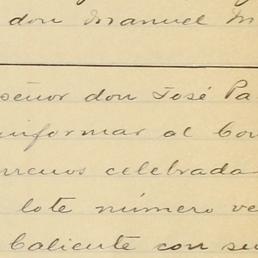 don Manuel M
señor don José Pa
informar al Con
rrenos celebrada
lote número ve
Caliente con su